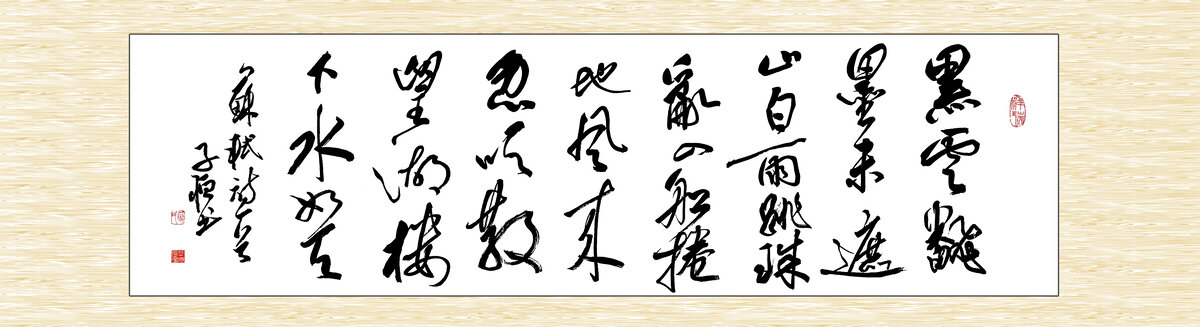 黑雲翻
墨未遮
山白雨跳珠
亂入船捲
地風來
忽吹散
望湖樓
下水如天
蘇軾詩一首
子書